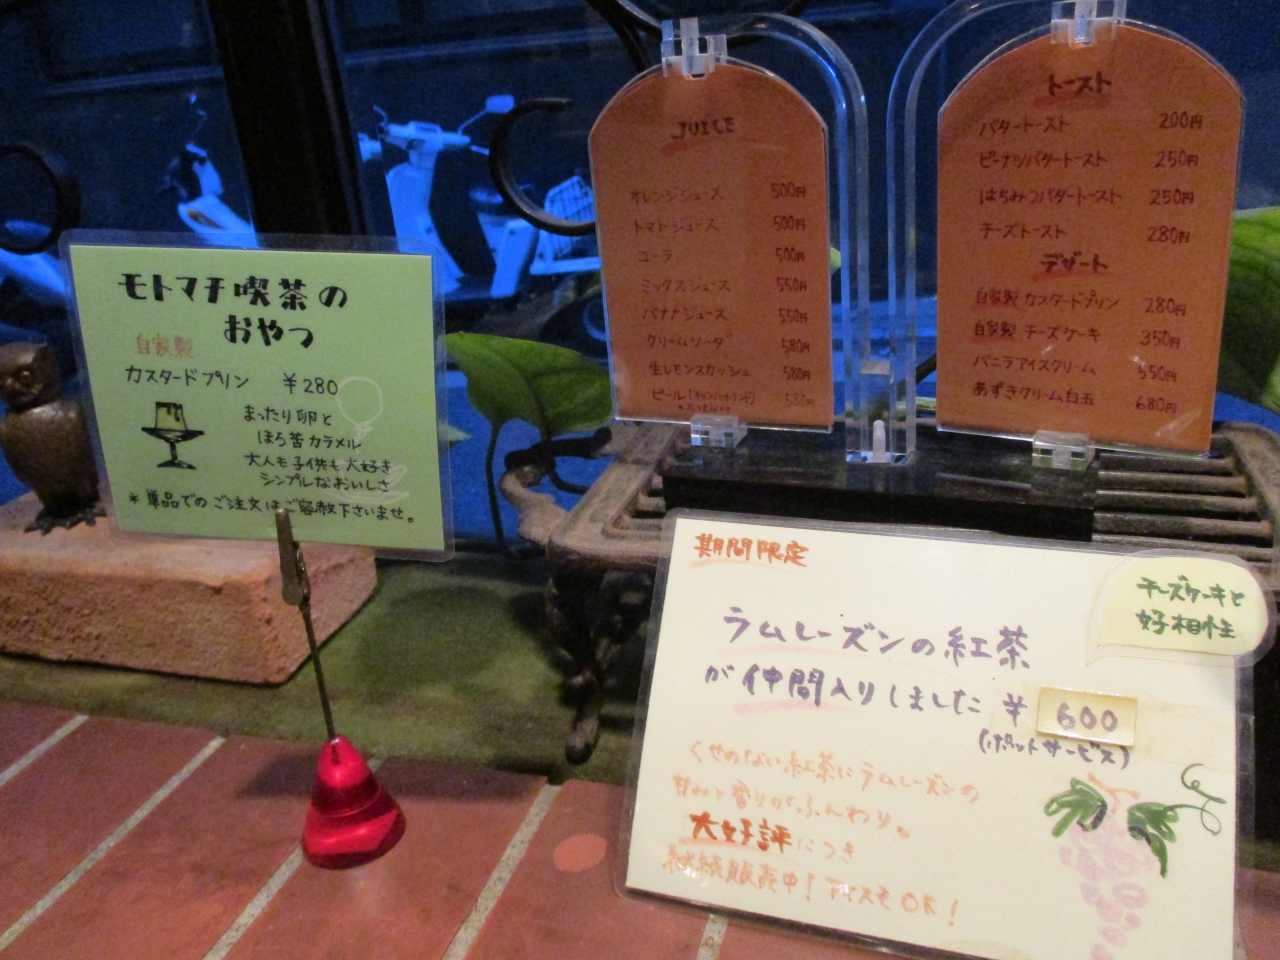 モトマチ喫茶の
おやつ
自家製
カスタードプリン ¥280
まったり卵と
ほろ苦カラメル
大人も子供も大好き
シンプルなおいしさ
*単品でのご注文はご容赦下さいませ。
JUICE
オレンジジュース 500円
トマトジュース 500円
コーラ 500円
ミックスジュース 550円
バナナジュース 550円
クリームソーダ 580円
生レモンスカッシュ 580円
ビール(キリンハートランド) 580円
トースト
バタートースト 200円
ピーナツバタートースト 250円
はちみつバタートースト 250円
チーズトースト 280円
デザート
自家製カスタードプリン 280円
自家製チーズケーキ 350円
バニラアイスクリーム 550円
あずきクリーム白玉 680円
期間限定
チーズケーキと
好相性
ラムレーズンの紅茶
が仲間入りしました ¥600
(ポットサービス)
くせのない紅茶にラムレーズンの
甘みと香りがふんわり。
大好評につき
継続販売中!アイスもOK!